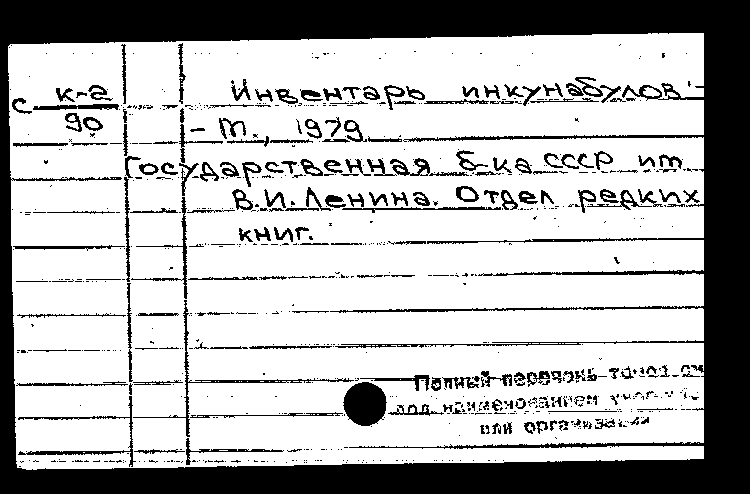 с к-2
90
Инвентарь инкунабулов -
- М., 1979
Государственная б-ка СССР им
В.И. Ленина. Отдел редких
книг.
Полный перечень
под наименованием
или организации